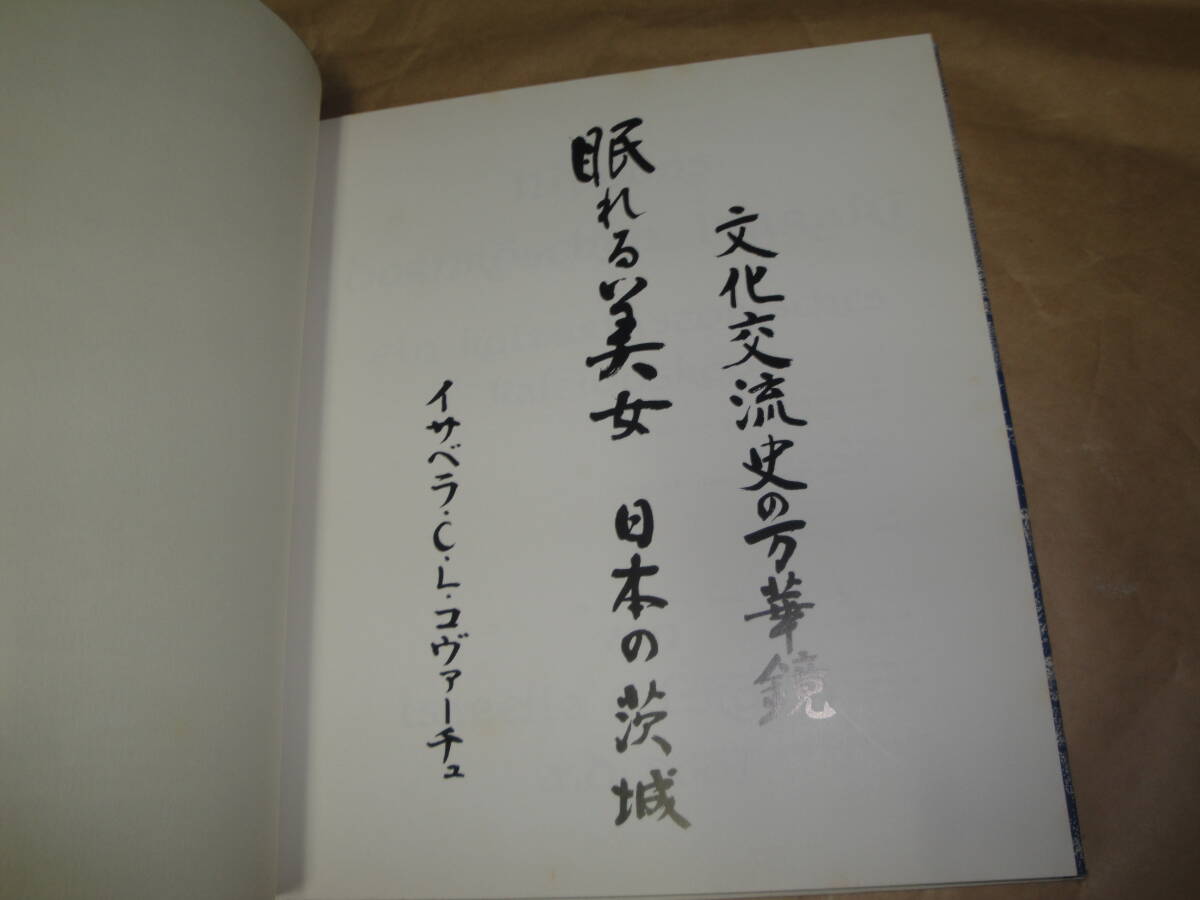 文化交流史の万華鏡
眠れる美女 日本の茨城
イサベラ・C・L・コヴァーチュ